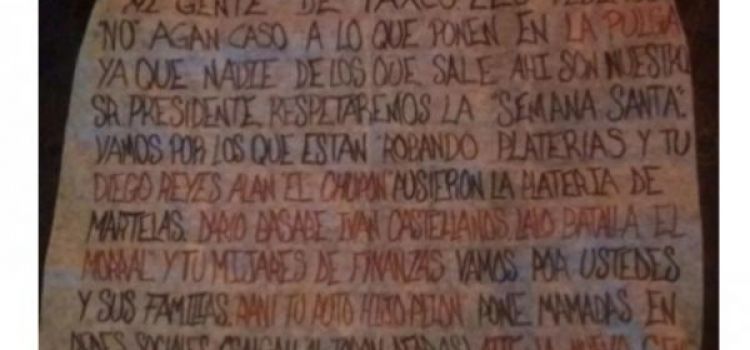 MI GENTE DE TAXCO LES
"NO" AGAN CASO A LO QUE PONEN EN LA PULGA
YA QUE NADIE DE LOS QUE SALE AHI SON NUESTRO
SR PRESIDENTE. RESPETAREMOS LA "SEMANA SANTA".
VAMOS POR LOS QUE ESTAN "ROBANDO PLATERIAS Y TU
DIEGO REYES ALAN EL CHOPON" PUSIERON LA PLATERIA DE
MARTELAS. DARIO BASABE IVAN CASTELLANOS LALO BATALLA EL
MORRAL" Y TU MIJARES DE FINANZAS VAMOS POR USTEDES
Y SUS FAMILIAS. DANI TO POTO HIJO PELON PONE MAMADAS EN
REDES SOCIALES